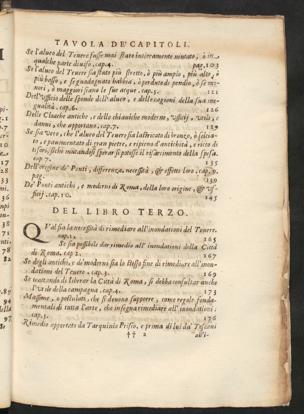 TAVOLA DE' CAPITOLI.
Se l'alueo del Teuere fusse mai stato intieramente mutato, ò in
qualche parte diuiso, cap. 4. pag. 103
Se l'alueo del Teuere sia stato più stretto, ò più ampio, più alto, ò
più basso, e se guadagnato habbia, ò perduto de pendio, ò se mi-
nori, ò maggiori siano le sue acque. cap. 5. 121
Dell'vfficio delle sponde dell'alueo, e delle cagioni della sua ine-
gualità. cap. 6. 126
Delle Cloache antiche, e delle chiauiche moderne, vfficij, vtili, e
danni, che apportano. cap. 7. 129
Se sia vero, che l'alueo del Teuere sia lastricato di bronzo, ò selica-
to, e pauimentato di gran pietre, e ripieno d'antichità, e ricco di
tesori, si che uotandosi sperar si potesse il risarcimento della spesa.
cap. 8. 135
Dell'origine de' Ponti, differenza, necessità, & effetti loro, cap. 9.
pag. 139
De' Ponti antichi, e moderni di Roma, della loro origine, & vf-
ficij. cap. 10. 145
DEL LIBRO TERZO.
QVal sia la necessità di rimediare all'inondationi del Teuere.
cap. 1. 165
Se sia possibile dar rimedio all'inondationi della Città
di Roma, cap. 2. 167
Se degli antichi, e de' moderni sia lo stesso fine di rimediare all'inon-
dationi del Teuere. cap. 3. 169
Se trattando di liberar la Città di Roma, si debba consultar anche
l'vtile della campagna. cap. 4. 173
Massime, o postulati, che si deuono supporre, come regole funda-
mentali di tutta l'arte, che insegna rimediare all'inondationi.
cap. 5. 176
Rimedio apportato da Tarquinio Prisco, e prima di lui da' Toscani
†† 2 all'i-